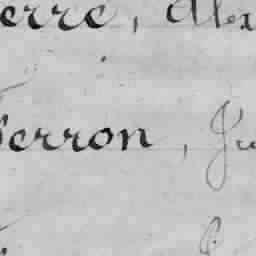 erre, Alex
erron, Ju